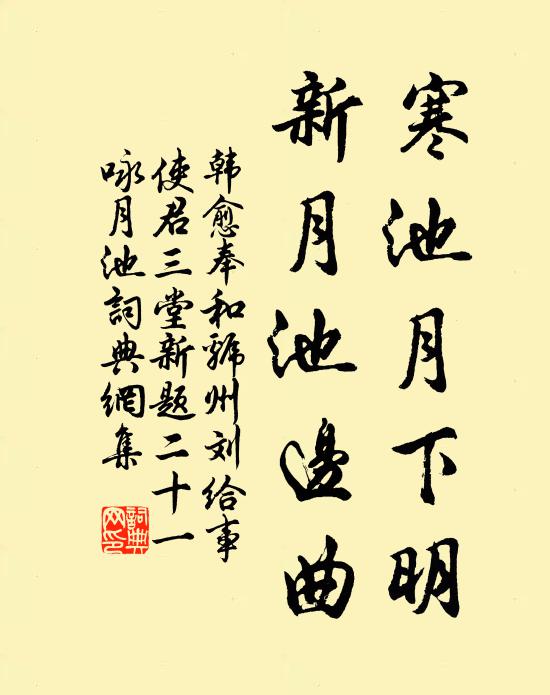 寒池月下明
新月池邊曲
韩愈奉和虢州刘给事
使君三堂新题二十一
咏月池詞典網集
詞典
网印